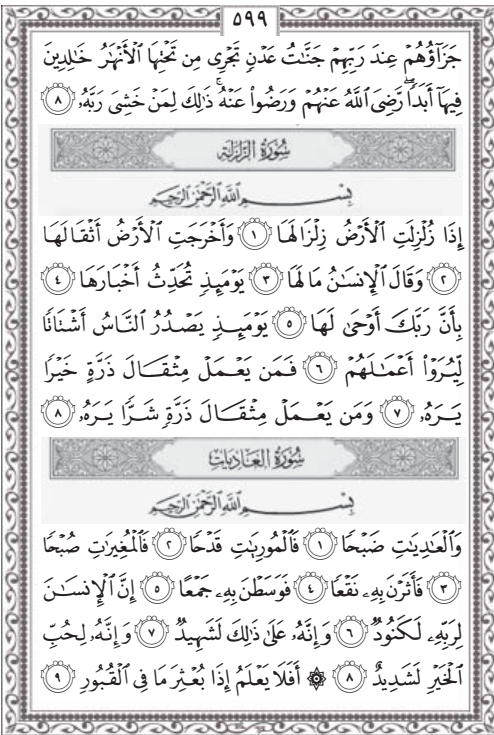 ٥٩٩
جَزَآؤُهُمْ عِندَ رَبِّهِمْ جَنَّٰتُ عَدْنٍ تَجْرِى مِن تَحْتِهَا ٱلْأَنْهَٰرُ خَٰلِدِينَ
فِيهَآ أَبَدًا ۖ رَّضِىَ ٱللَّهُ عَنْهُمْ وَرَضُوا۟ عَنْهُ ۚ ذَٰلِكَ لِمَنْ خَشِىَ رَبَّهُۥ ٨
سُورَةُ الزَّلْزَلَةِ
بِسْمِ ٱللَّهِ ٱلرَّحْمَٰنِ ٱلرَّحِيمِ
إِذَا زُلْزِلَتِ ٱلْأَرْضُ زِلْزَالَهَا ١ وَأَخْرَجَتِ ٱلْأَرْضُ أَثْقَالَهَا
٢ وَقَالَ ٱلْإِنسَٰنُ مَا لَهَا ٣ يَوْمَئِذٍ تُحَدِّثُ أَخْبَارَهَا ٤
بِأَنَّ رَبَّكَ أَوْحَىٰ لَهَا ٥ يَوْمَئِذٍ يَصْدُرُ ٱلنَّاسُ أَشْتَاتًا
لِّيُرَوْا۟ أَعْمَٰلَهُمْ ٦ فَمَن يَعْمَلْ مِثْقَالَ ذَرَّةٍ خَيْرًا
يَرَهُۥ ٧ وَمَن يَعْمَلْ مِثْقَالَ ذَرَّةٍ شَرًّا يَرَهُۥ ٨
سُورَةُ العَادِيَاتِ
بِسْمِ ٱللَّهِ ٱلرَّحْمَٰنِ ٱلرَّحِيمِ
وَٱلْعَٰدِيَٰتِ ضَبْحًا ١ فَٱلْمُورِيَٰتِ قَدْحًا ٢ فَٱلْمُغِيرَٰتِ صُبْحًا
٣ فَأَثَرْنَ بِهِۦ نَقْعًا ٤ فَوَسَطْنَ بِهِۦ جَمْعًا ٥ إِنَّ ٱلْإِنسَٰنَ
لِرَبِّهِۦ لَكَنُودٌ ٦ وَإِنَّهُۥ عَلَىٰ ذَٰلِكَ لَشَهِيدٌ ٧ وَإِنَّهُۥ لِحُبِّ
ٱلْخَيْرِ لَشَدِيدٌ ٨ ۞ أَفَلَا يَعْلَمُ إِذَا بُعْثِرَ مَا فِى ٱلْقُبُورِ ٩